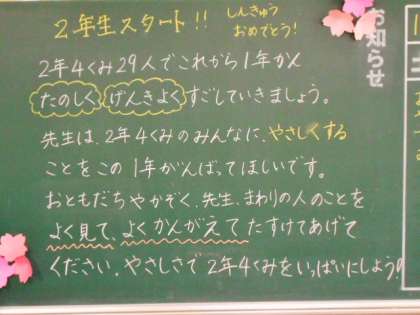 2年生スタート!! しんきゅう
おめでとう!
2年4くみ29人でこれから1年かん
たのしく げんきよく すごしていきましょう。
先生は、2年4くみのみんなに、やさしくする
ことをこの1年がんばってほしいです。
おともだちやかぞく、先生、まわりの人のことを
よく見て、よくかんがえてたすけてあげて
ください。やさしさで2年4くみをいっぱいにしよう!
お知らせ